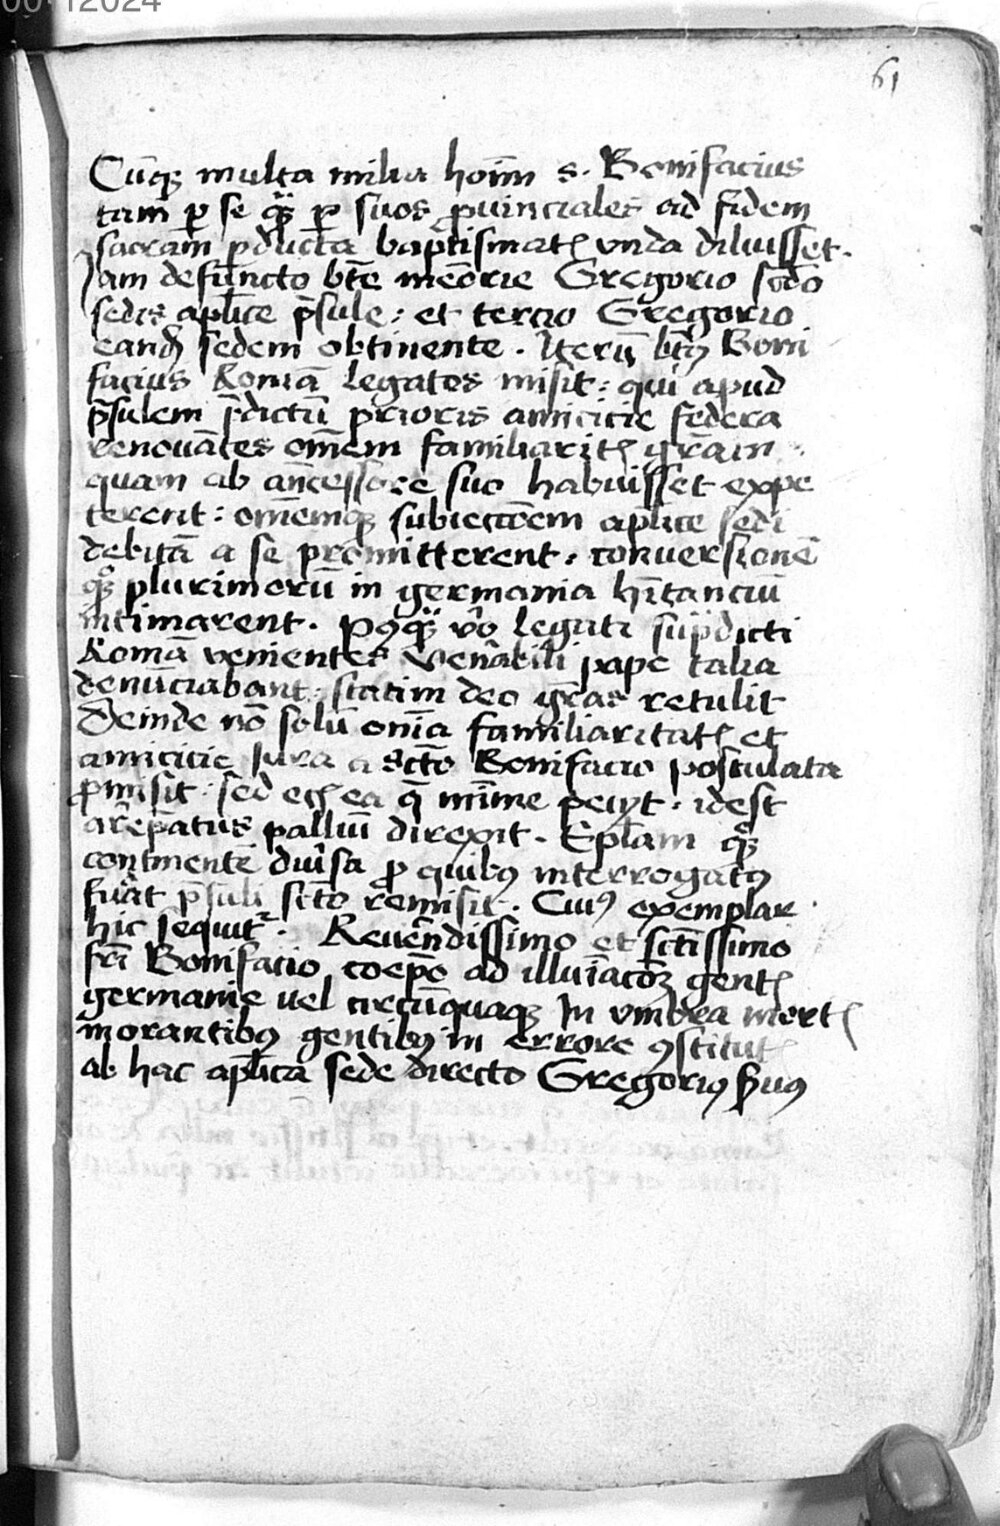 00112024
61
Cūqꝫ multa milia hoīm s. Bonifacius
tam ꝑ se qꝫ̄ ꝑ suos ꝓuinciales ad fidem
sacram ꝑducta baptismatꝭ vnda diluisset.
Jam defuncto btē meōrie Gregorio scdo
sedis aplīce p̄sule: et tercio Gregorio
eandē sedem obtinente. Iterū btꝰ Boni
facius Romā legatos misit: qui apud
p̄sulem p̄dictū prioris amicicie federa
renouātes om̄em familiaritꝭ gr̄am
quam ab an̄cessore suo habuisset expe
terent: om̄emqꝫ subiectōem aplīce sedi
debitā a se promitterent: conuersionē
qꝫ plurimorū in germania hītanciū
intimarent. Posqꝫ̄ vo legati sup̄dicti
Romā venientes Ven̄abili pape talia
denūciabant: statim deo gr̄as retulit
Deinde nō solū om̄ia familiaritatꝭ et
amicicie iura a sctō Bonifacio postulata
ꝓmisit: sed etꝭ ea q̄ mīme peciyt: idest
ar̄ep̄atus palliū direxit. Epl̄am qꝫ
continentē diu̇sa ꝓ quibꝰ interrogatꝰ
fu̇at p̄suli sctō remisit. Cuiꝰ exemplar
hic sequit᷑. Reuēndissimo et sctīssimo
fr̄i Bonifacio coep̄o ad illuīacōꝫ gentꝭ
germanie uel circūquaqꝫ In vmbra mortꝭ
morantibꝰ gentibꝰ in errore ꝯstitutꝭ
ab hac aplīca sede directo Gregoriꝰ s̄uus